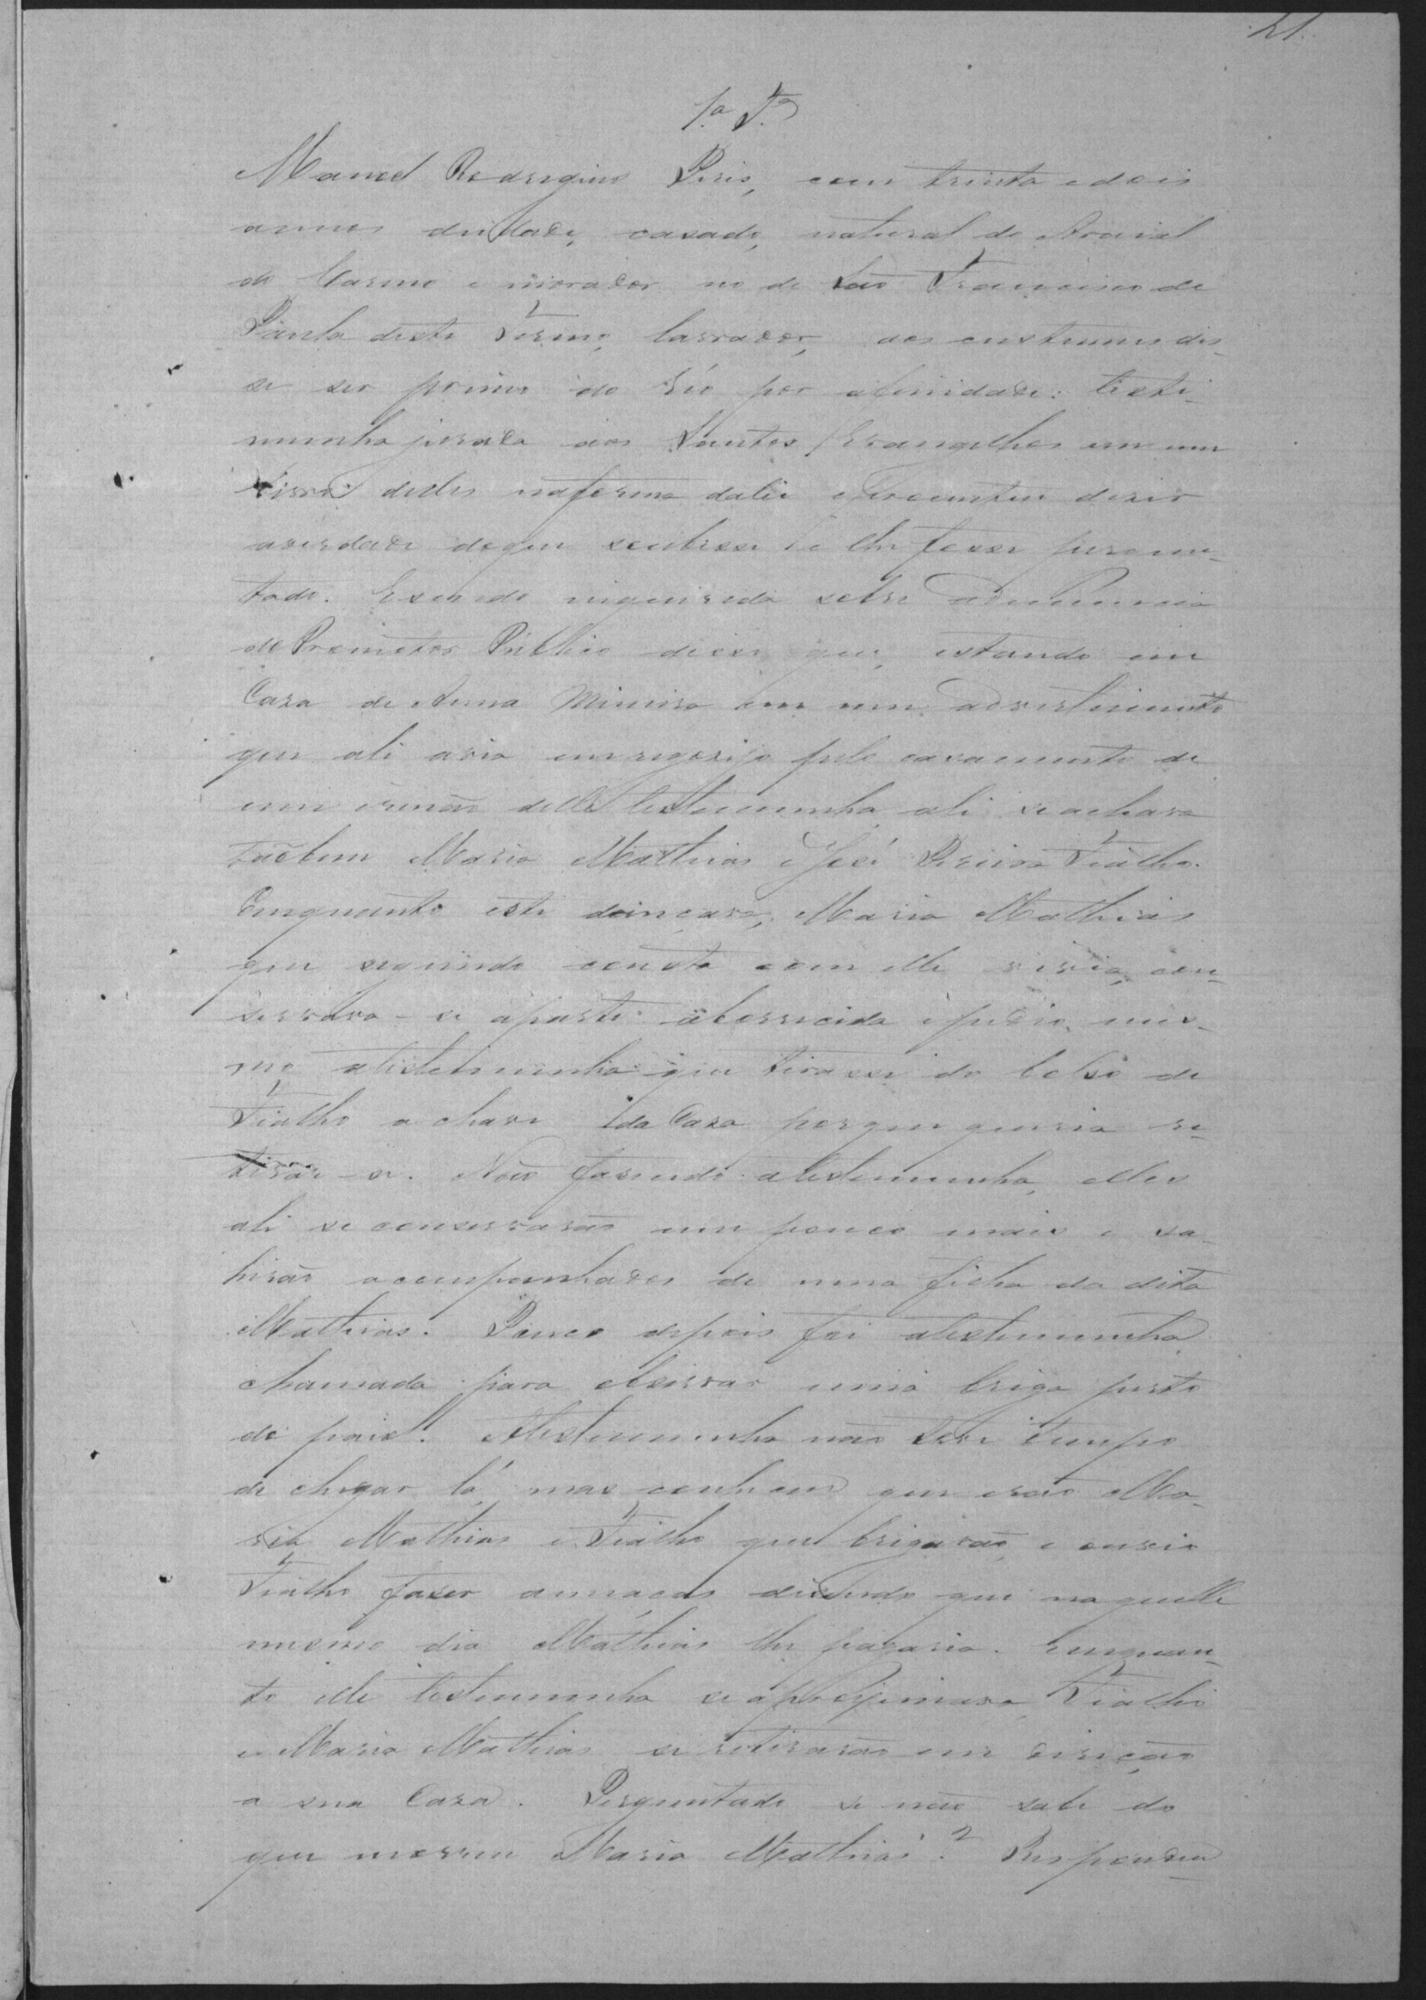 21.
1.a T.a
Manoel Rodrigues Peris, com trinta e dois
annos deidade, casado, natural do Araial
do Carmo e morador no de São Francisco de
Paula deste Termo, lavrador, aos custumes dis-
se ser primo do réo por afinidade: testi-
munha jurada aos Santos Evangelhos em um
livro delles naforma dalei eprometeu diser
averdade doque soubesse e lhe fosse pregun-
tado. Esendo inquirida sobre adenuncia
do Promotor Publico disse que, estando em
Caza de Anna em um advertimento
que ali avia emregosijo pelo casamento de
um irmão delle testimunha, ali seachava
tãobem Maria Mathias eJosé Pereira Fialho.
Emquanto este dançava, Maria Mathias
que segundo consta com elle vivia, con-
servava-se áparte aborrecida epedio mes-
mo atestimunha que tirasse do bolso de
Fialho a chave da Caza porque queria re-
tirar-se. Não fasendo atestimunha, elles
ali se conservarão um pouco mais e sa-
hirão acompanhados de uma filha da dita
Mathias. Pouco depois foi atestimunha
chamada para apartar uma briga perto
do paiol. Atestimunha não teve tempo
de chegar lá, mas conheceu que erão Ma-
ria Mathias e Fialho que brigavão, e ouvio
Fialho faser ameaças disendo que naquelle
mesmo dia Mathias lhe pagaria. Emquan-
to elle testimunha se aproximava Fialho
e Maria Mathias se retirarão em direção
a sua Caza. Perguntado se não sabe do
que morreu Maria Mathias? Respondeu